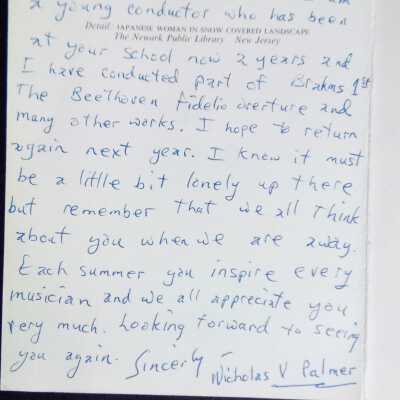 a young conductor who has been
Detail JAPANESE WOMAN IN SNOW COVERED LANDSCAPE
The Newark Public Library New Jersey
at your School now 2 years and
I have conducted part of Brahms 1st
The Beethoven Fidelio overture and
many other works. I hope to return
again next year. I know it must
be a little bit lonely up there
but remember that we all think
about you when we are away.
Each summer you inspire every
musician and we all appreciate you
very much. Looking forward to seeing
you again. Sincerly
Nicholas V Palmer